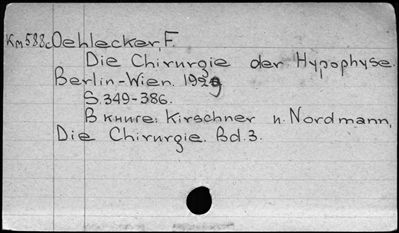 Km588c Oehlecker, F.
Die Chirurgie der Hypophyse.
Berlin-Wien. 1929
S. 349-386.
В книге: Kirschner u. Nordmann,
Die Chirurgie. Bd. 3.